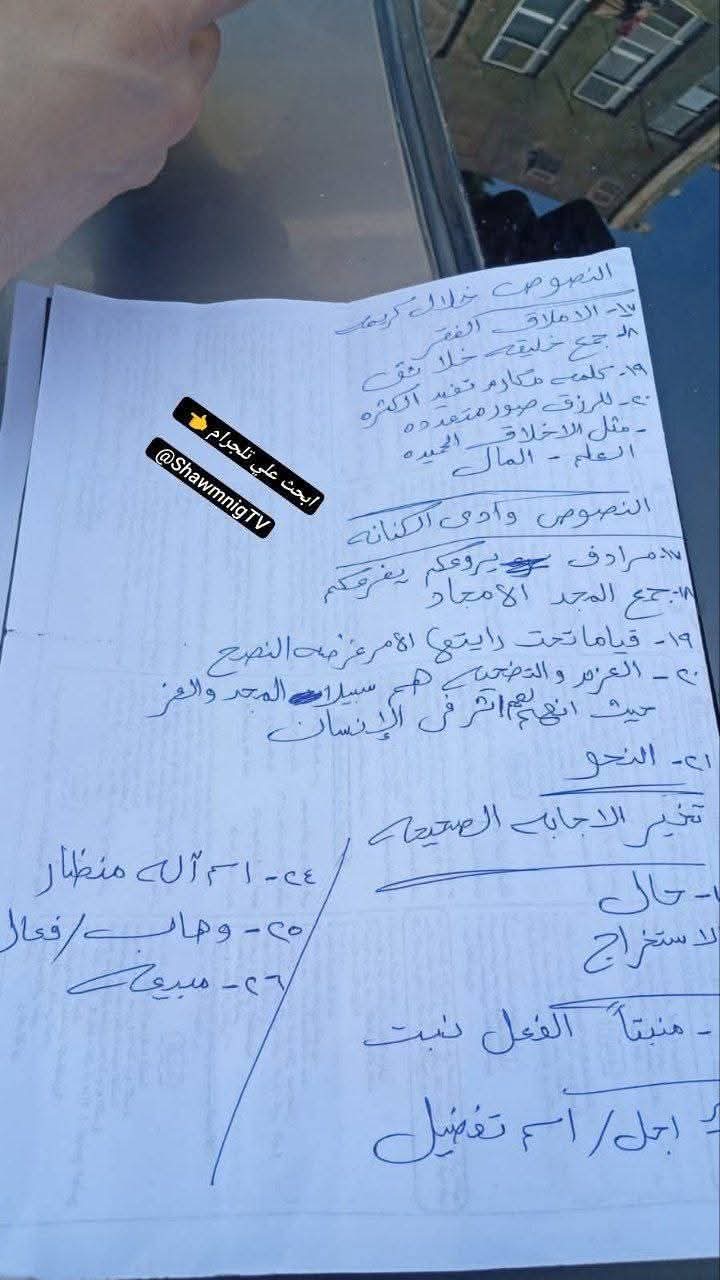 النصوص خلال كريمه
١٧- الاملاق الفقر
١٨- جمع خليقه خلائق
١٩- كلمه مكارم تفيد الكثره
٢٠- للرزق صور متعدده
- مثل الاخلاق الحميده
العلم - المال
النصوص وادى الكنانه
١٧- مرادف يروعكم يفزعكم
١٨- جمع المجد الامجاد
١٩- قياما تحت رايتها الامر غرضه النصح
٢٠- العزم والتضحيه هم سبيلا المجد والعز
حيث انهم لهم اثر فى الإنسان
٢١- النحو
تخير الاجابه الصحيحه
- حال
الاستخراج
- منبتاً الفعل نبت
اجل / اسم تفضيل
٢٤- اسم آله منظار
٢٥- وهاب / فعال
٢٦- مبيعه
ابحث علي تلجرام 👈
@ShawmnigTV